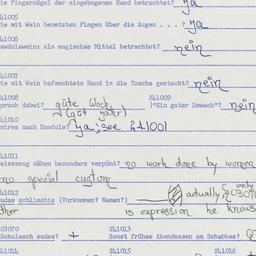 ie Fingernägel der eingebogenen Hand betrachtet? ja
41005
ie mit Wein benetzten Fingern über die Augen ...? ja
41006
awdolewein: als magisches Mittel betrachtet? nein
41007
ie mit Wein befeuchtete Hand in die Tasche gesteckt? nein
41008 241009
pruch dabei? gute Woch )"Kin guter Rewach"? nein
(gut jahr)
41010
züress nach Hawdole? ja; see 241001
241011
eisszeug nähen besonders verpönt? no work done by women
no special custom
241012
udas schlischis (Vorkommen? Namen?) actually, only 203070
ther is expression he knows
03070 241013
Scholesch sudes? + Sonst frühes Abendessen am Schabbes?
241014 241015 241016